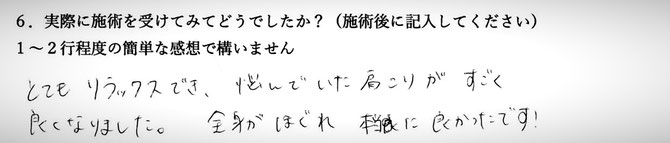 ６．実際に施術を受けてみてどうでしたか？（施術後に記入してください）
１～２行程度の簡単な感想で構いません
とても リラックスでき、悩んでいた肩こりが すごく
良くなりました。 全身が ほぐれ 本当に 良かったです!